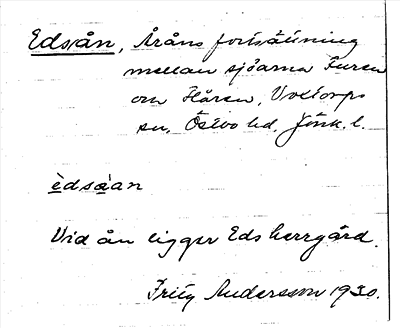 Edsån, Åråns fortsättning
mellan sjöarna Furen
och Flåren, Voxtorps
sn, Östbo hd. Jönk. l.
èdsàan
Vid ån ligger Eds herrgård.
Fritz Andersson 1930.